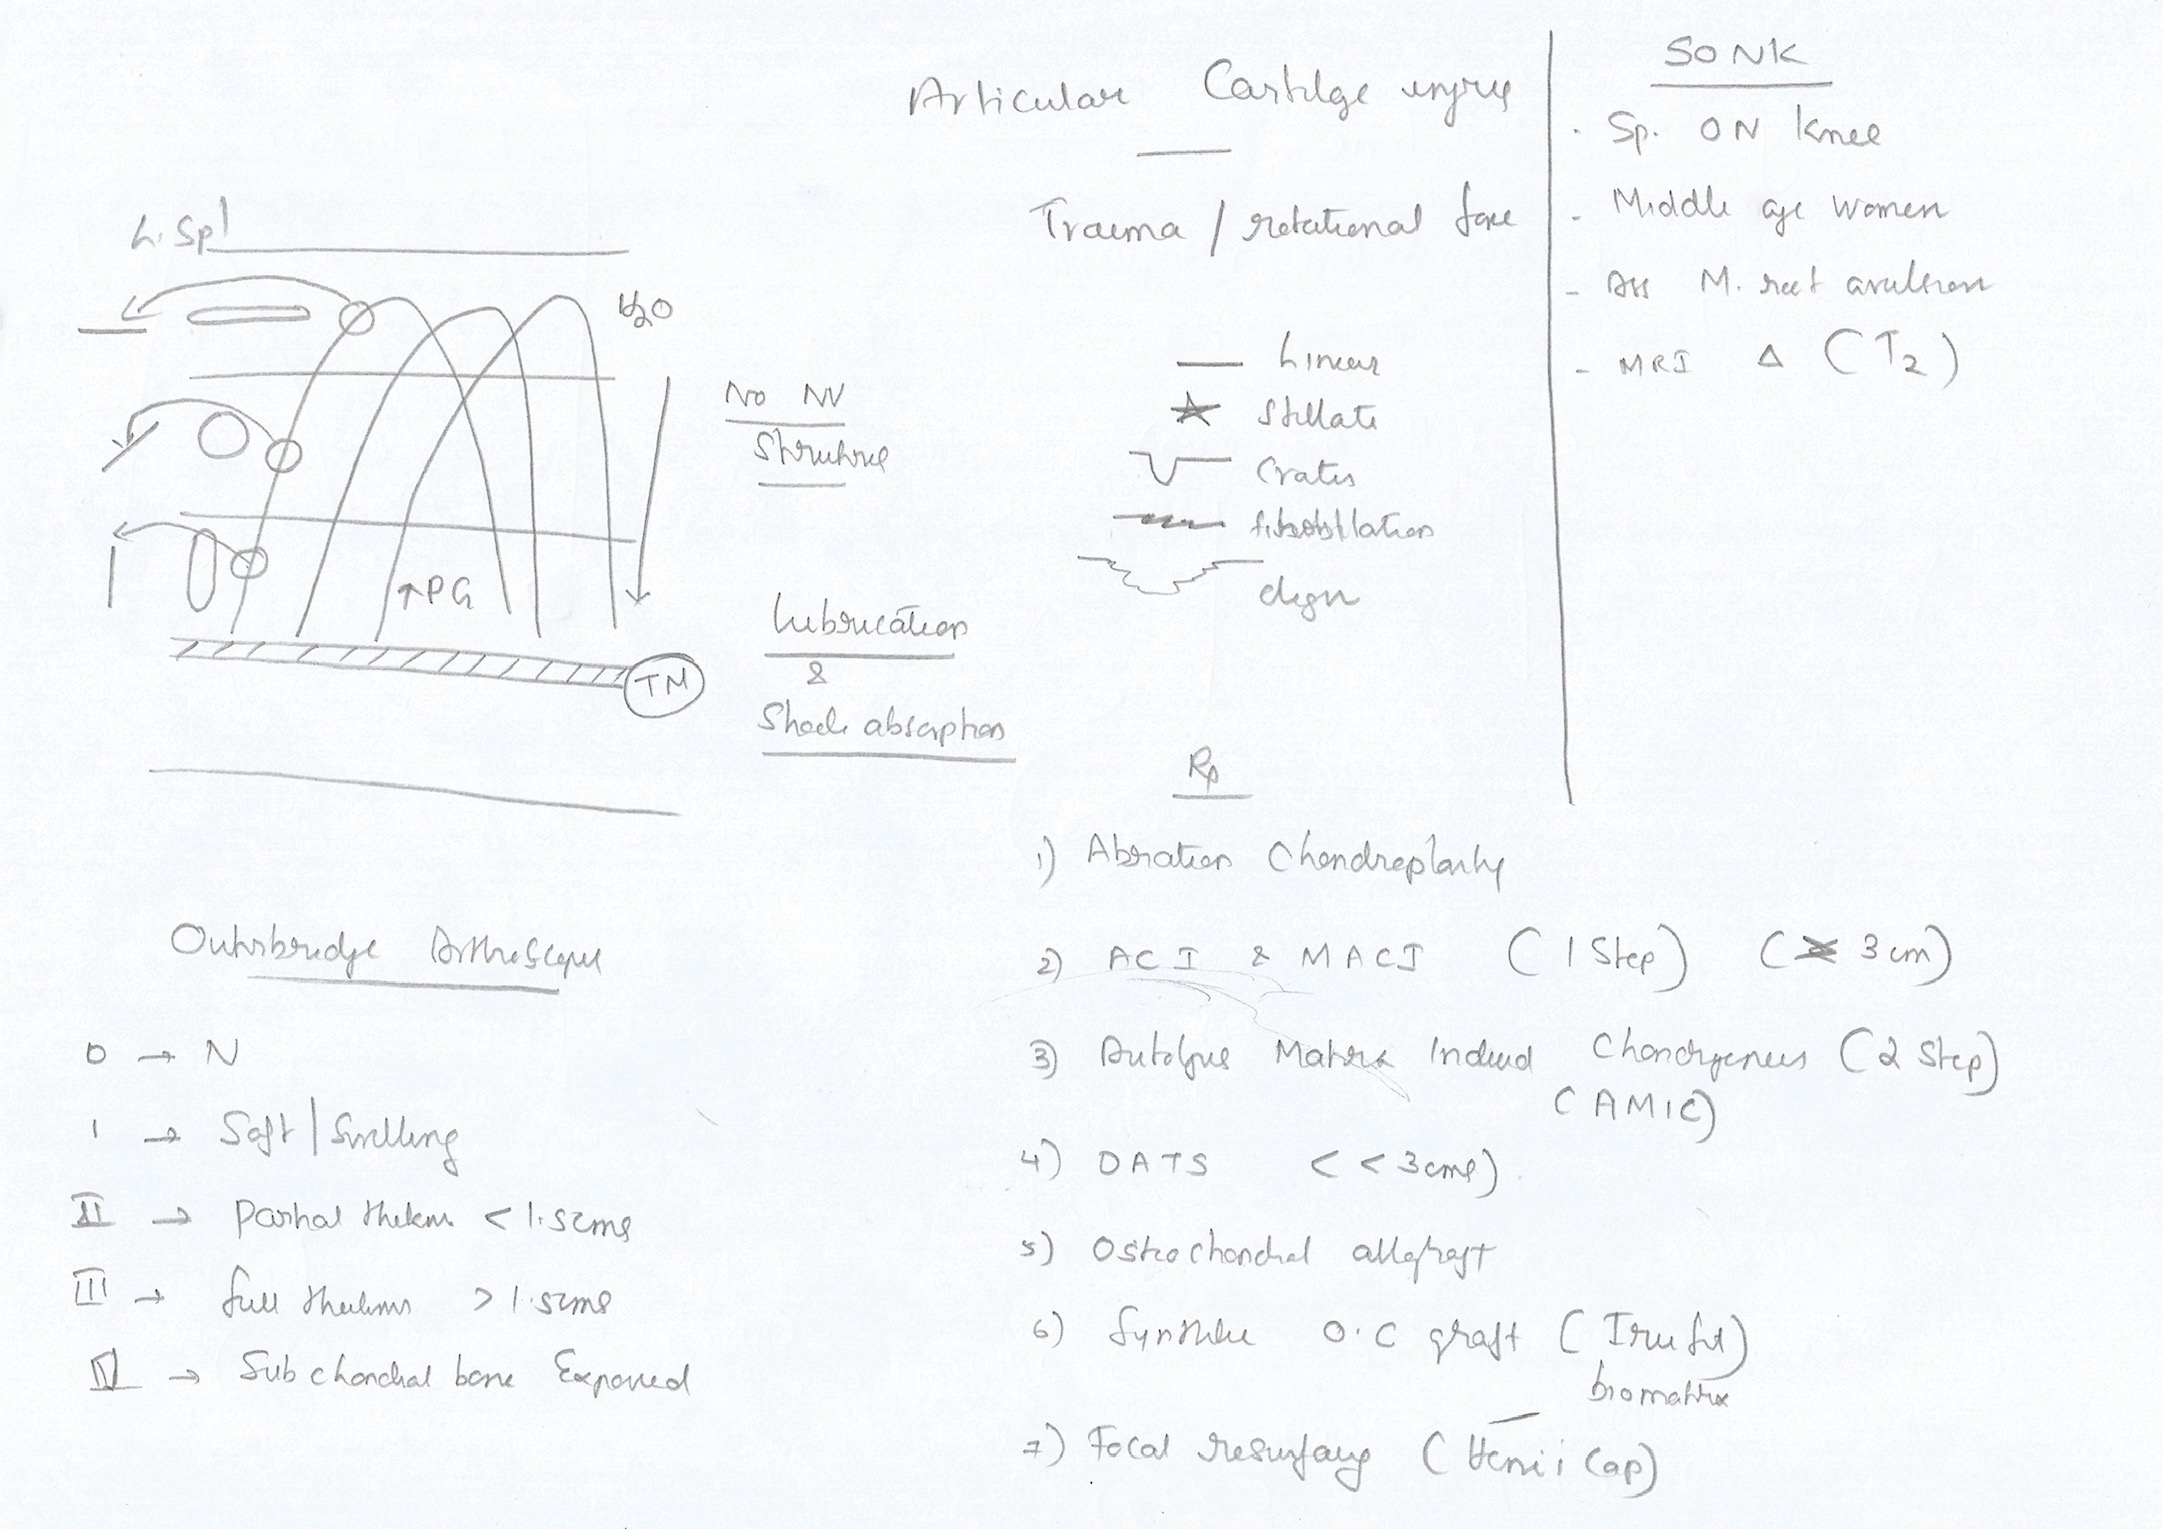 Articular Cartilge injury
Trauma / rotational force
Linear
Stillate
Crater
fibrobillation
degn
L. Spl
H2O
No NV
Structure
↑PG
TM
Lubrication
&
Shock absorption
SONK
· Sp. ON Knee
- Middle age women
- Ass M. root avulsion
- MRI Δ (T2)
Outerbridge Arthroscopic
0 → N
1 → Soft / Swelling
II → Partial thickns < 1.5cms
III → full thickns > 1.5cms
IV → Subchondral bone Exposed
Rp
1) Abration Chondroplasty
2) ACI & MACI (1 Step) (3 cm)
3) Autologus Matrix Induced Chondrgenesis (2 Step)
(AMIC)
4) OATS (< 3cms)
5) Osteochondral allograft
6) Synthetic O.C graft (Trufit)
biomatrix
7) Focal resurfacing (Hemi Cap)